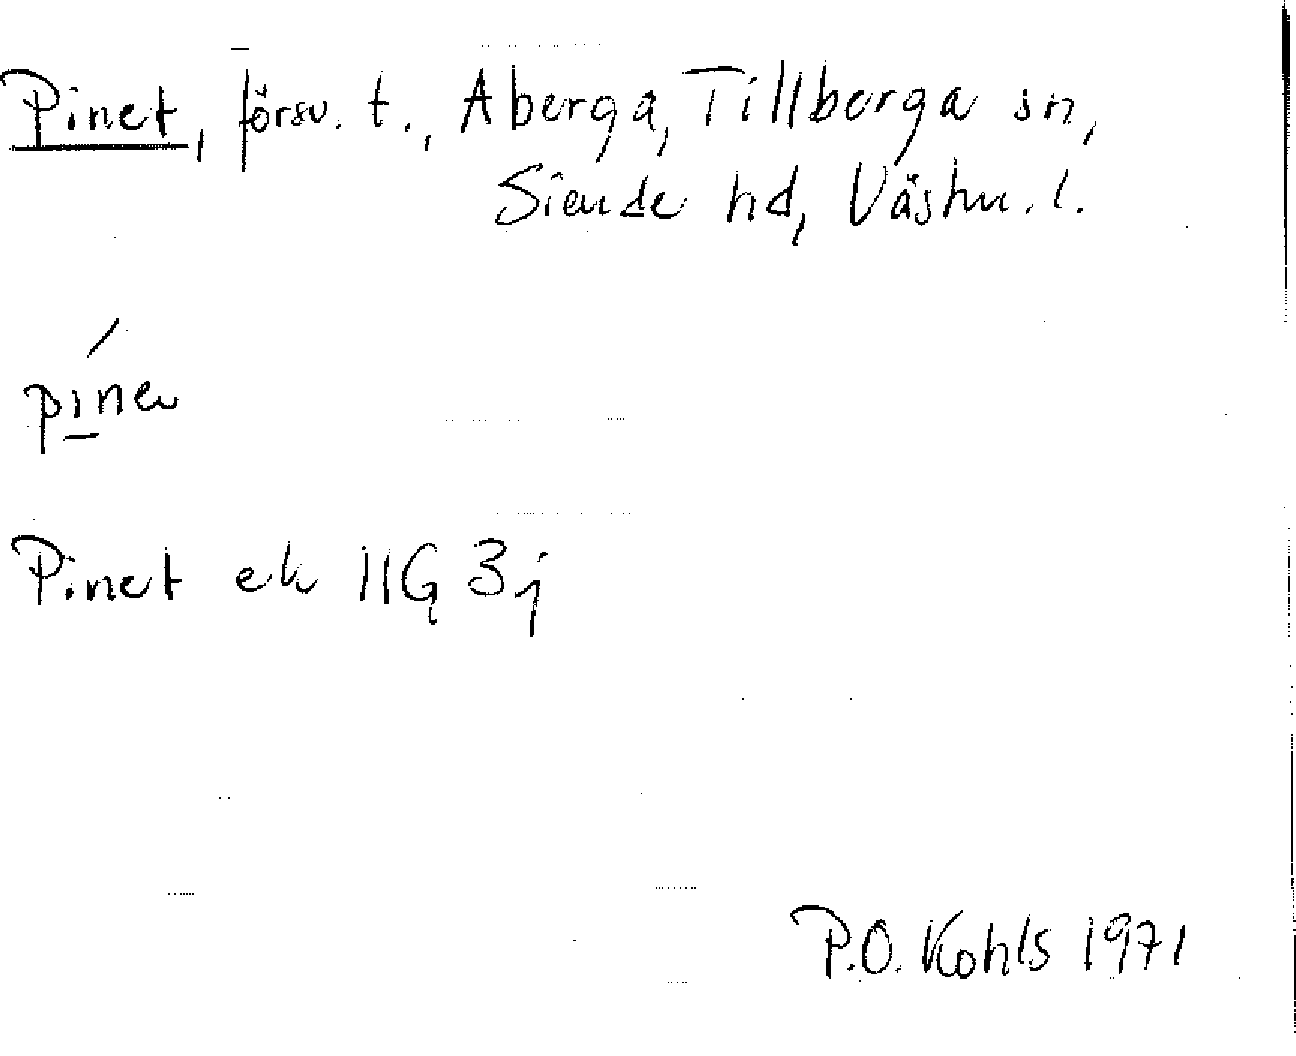 Pinet, försv. t., Aberga, Tillberga sn,
Siende hd, Västm. l.
Pinet ek 11G 3j
P.O. Kohls 1971